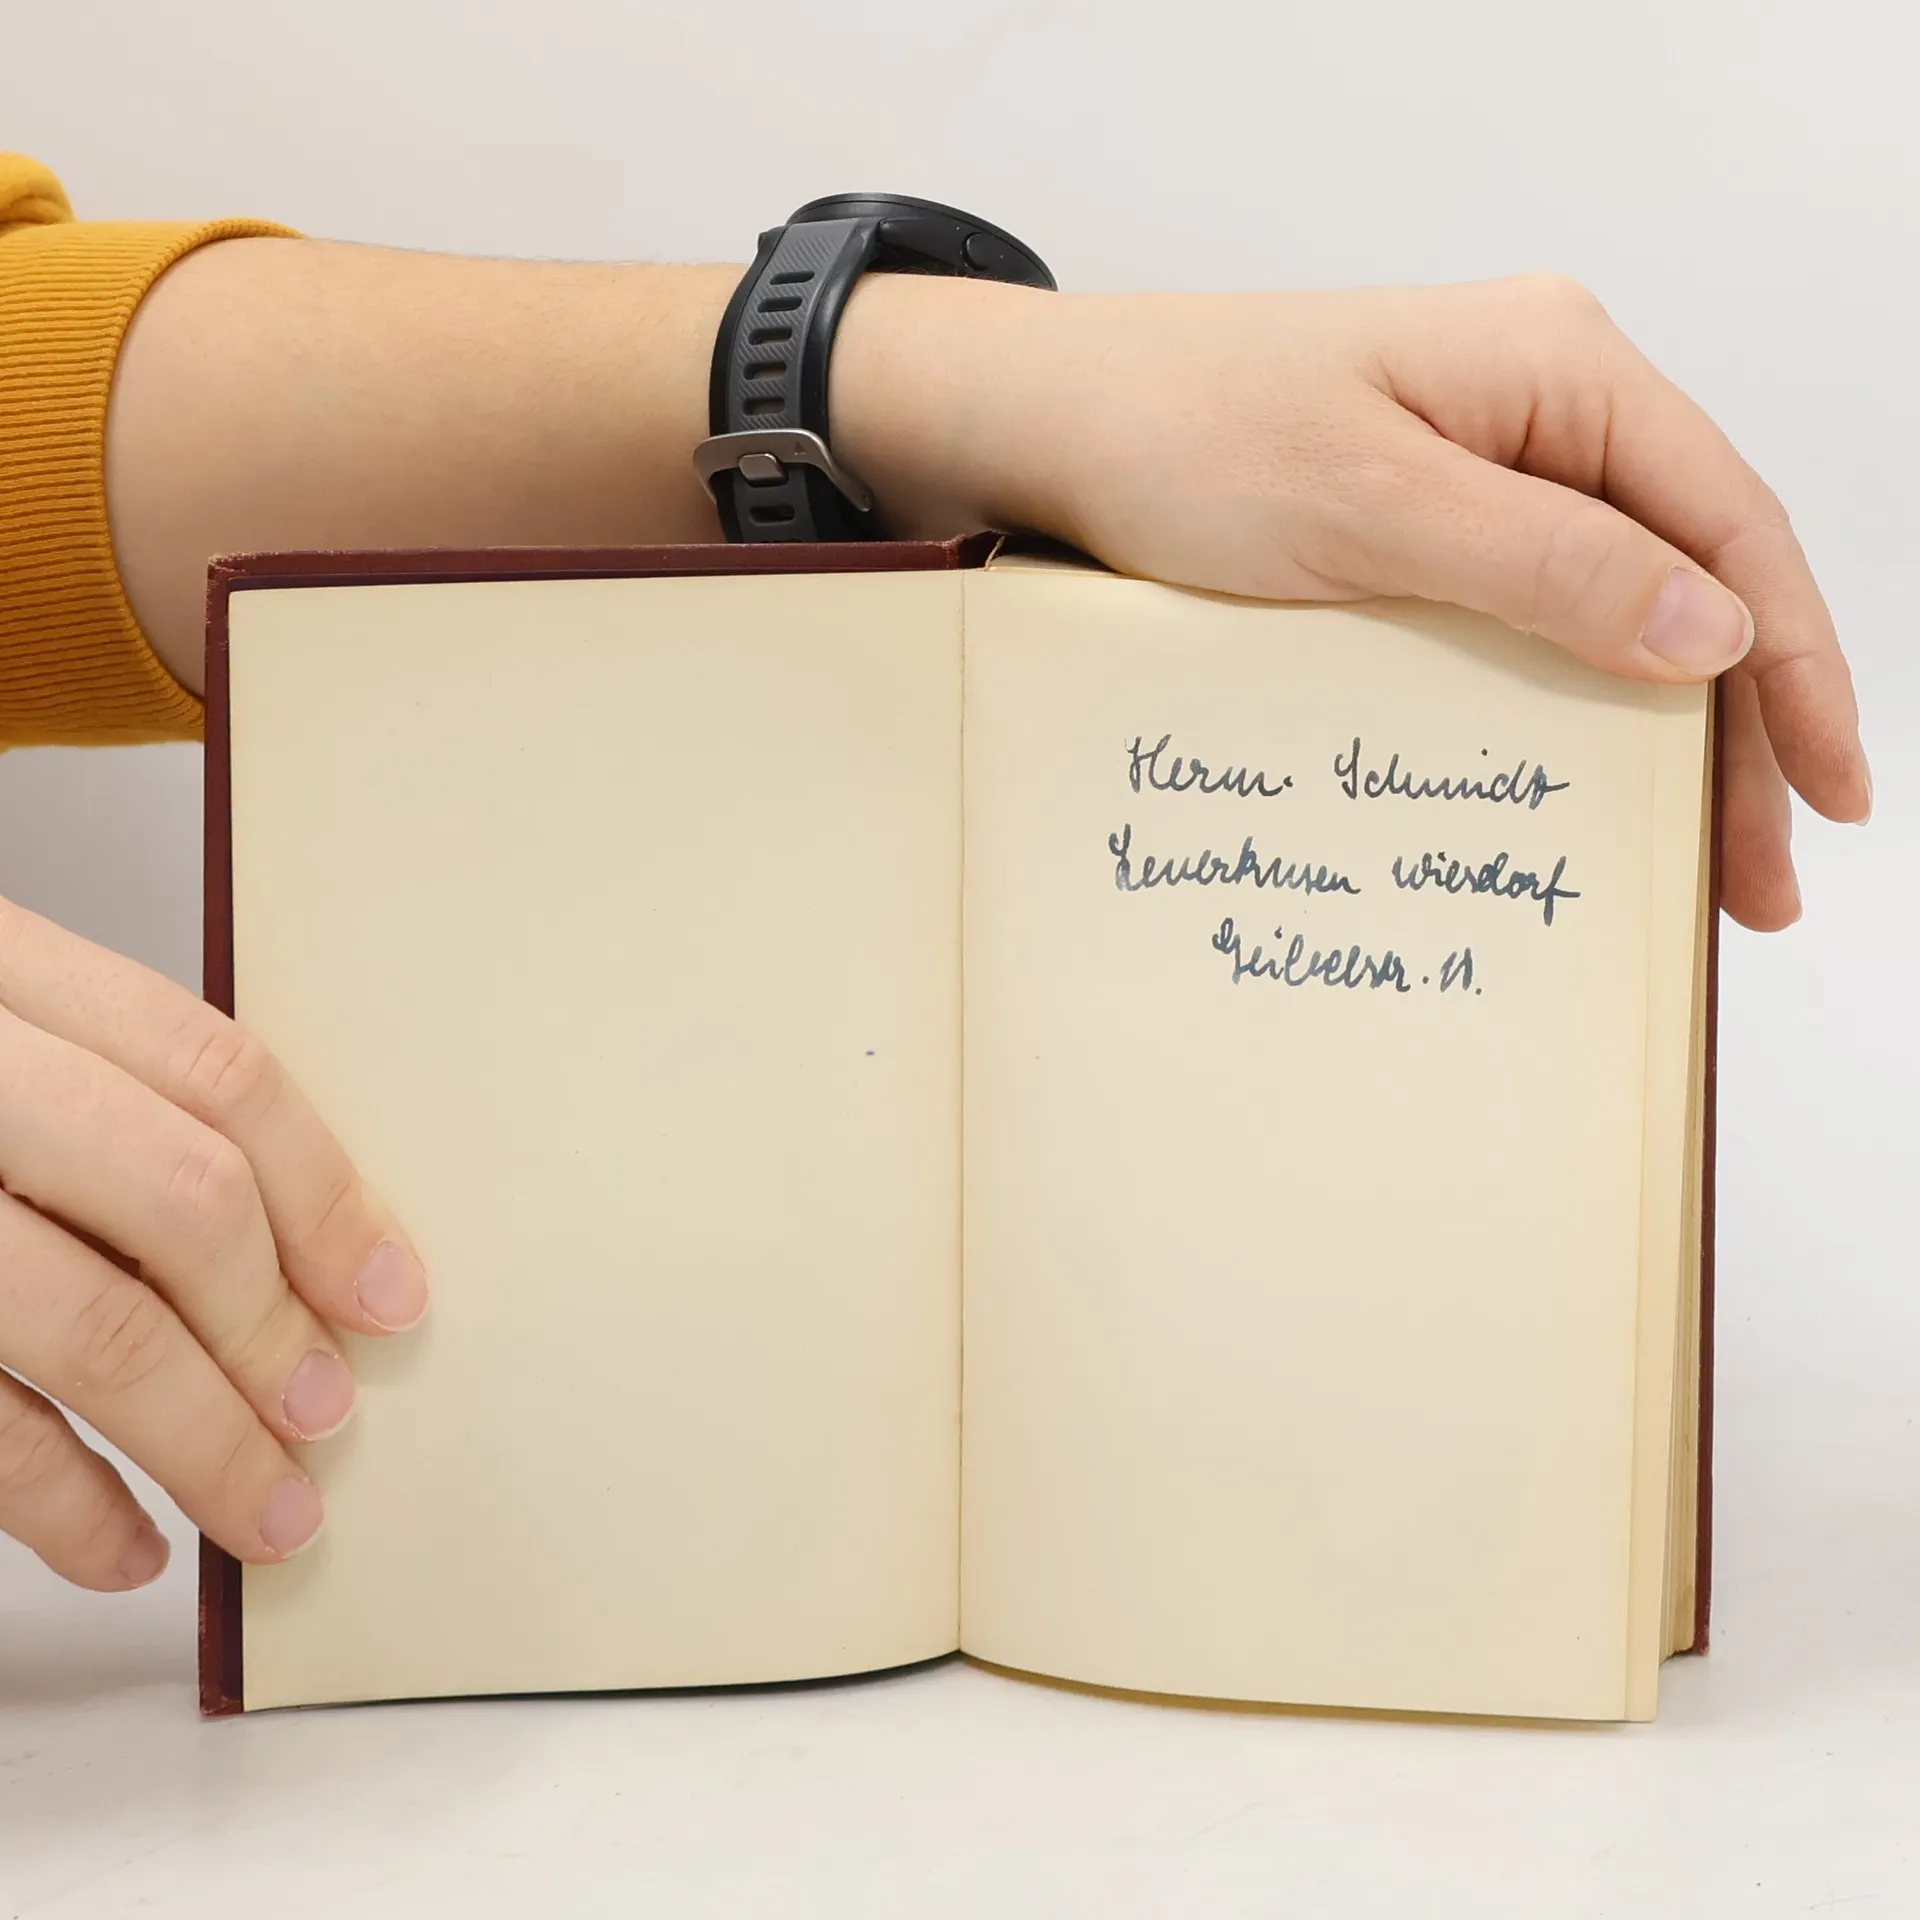 Herm. Schmidt
Leverkusen Wiesdorf
11.